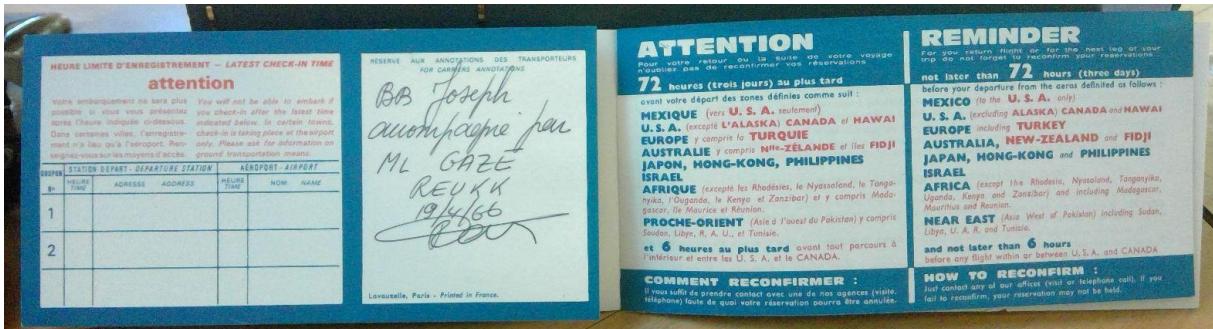 HEURE LIMITE D'ENREGISTREMENT — LATEST CHECK-IN TIME
attention
Votre embarquement ne sera plus
possible si vous vous présentez
après l'heure indiquée ci-dessous.
Dans certaines villes, l'enregistre-
ment n'a lieu qu'à l'aéroport. Ren-
seignez-vous sur les moyens d'accès.
You will not be able to embark if
you check-in after the latest time
indicated below. In certain towns,
check-in is taking place at the airport
only. Please ask for information on
ground transportation means.
COUPON
N°
STATION DEPART - DEPARTURE STATION
AÉROPORT - AIRPORT
HEURE
TIME
ADRESSE ADDRESS
HEURE
TIME
NOM NAME
1
2
RÉSERVÉ AUX ANNOTATIONS DES TRANSPORTEURS
FOR CARRIERS ANNOTATIONS
BB Joseph
accompagné par
ML GAZE
REUKK
19/4/66
Lavauzelle, Paris - Printed in France.
ATTENTION
Pour votre retour ou la suite de votre voyage
n'oubliez pas de reconfirmer vos réservations
72 heures (trois jours) au plus tard
avant votre départ des zones définies comme suit :
MEXIQUE (vers U. S. A. seulement)
U. S. A. (excepté L'ALASKA) CANADA et HAWAI
EUROPE y compris la TURQUIE
AUSTRALIE y compris Nlle-ZÉLANDE et îles FIDJI
JAPON, HONG-KONG, PHILIPPINES
ISRAEL
AFRIQUE (excepté les Rhodésies, le Nyassaland, le Tanga-
nyika, l'Ouganda, le Kenya et Zanzibar) et y compris Mada-
gascar, Ile Maurice et Réunion.
PROCHE-ORIENT (Asie à l'ouest du Pakistan) y compris
Soudan, Libye, R. A. U., et Tunisie.
et 6 heures au plus tard avant tout parcours à
l'intérieur et entre les U. S. A. et le CANADA.
COMMENT RECONFIRMER :
Il vous suffit de prendre contact avec une de nos agences (visite,
téléphone) faute de quoi votre réservation pourra être annulée.
REMINDER
For you return flight or for the next leg of your
trip do not forget to reconfirm your reservations
not later than 72 hours (three days)
before your departure from the aeras definited as follows :
MEXICO (to the U. S. A. only)
U. S. A. (excluding ALASKA) CANADA and HAWAI
EUROPE including TURKEY
AUSTRALIA, NEW-ZEALAND and FIDJI
JAPAN, HONG-KONG and PHILIPPINES
ISRAEL
AFRICA (except the Rhodesia, Nyasaland, Tanganyika,
Uganda, Kenya and Zanzibar) and including Madagascar,
Mauritius and Reunion.
NEAR EAST (Asia West of Pakistan) including Sudan,
Libya, U. A. R. and Tunisia.
and not later than 6 hours
before any flight within or between U. S. A. and CANADA
HOW TO RECONFIRM :
Just contact any of our offices (visit or telephone call). If you
fail to reconfirm, your reservation may not be held.